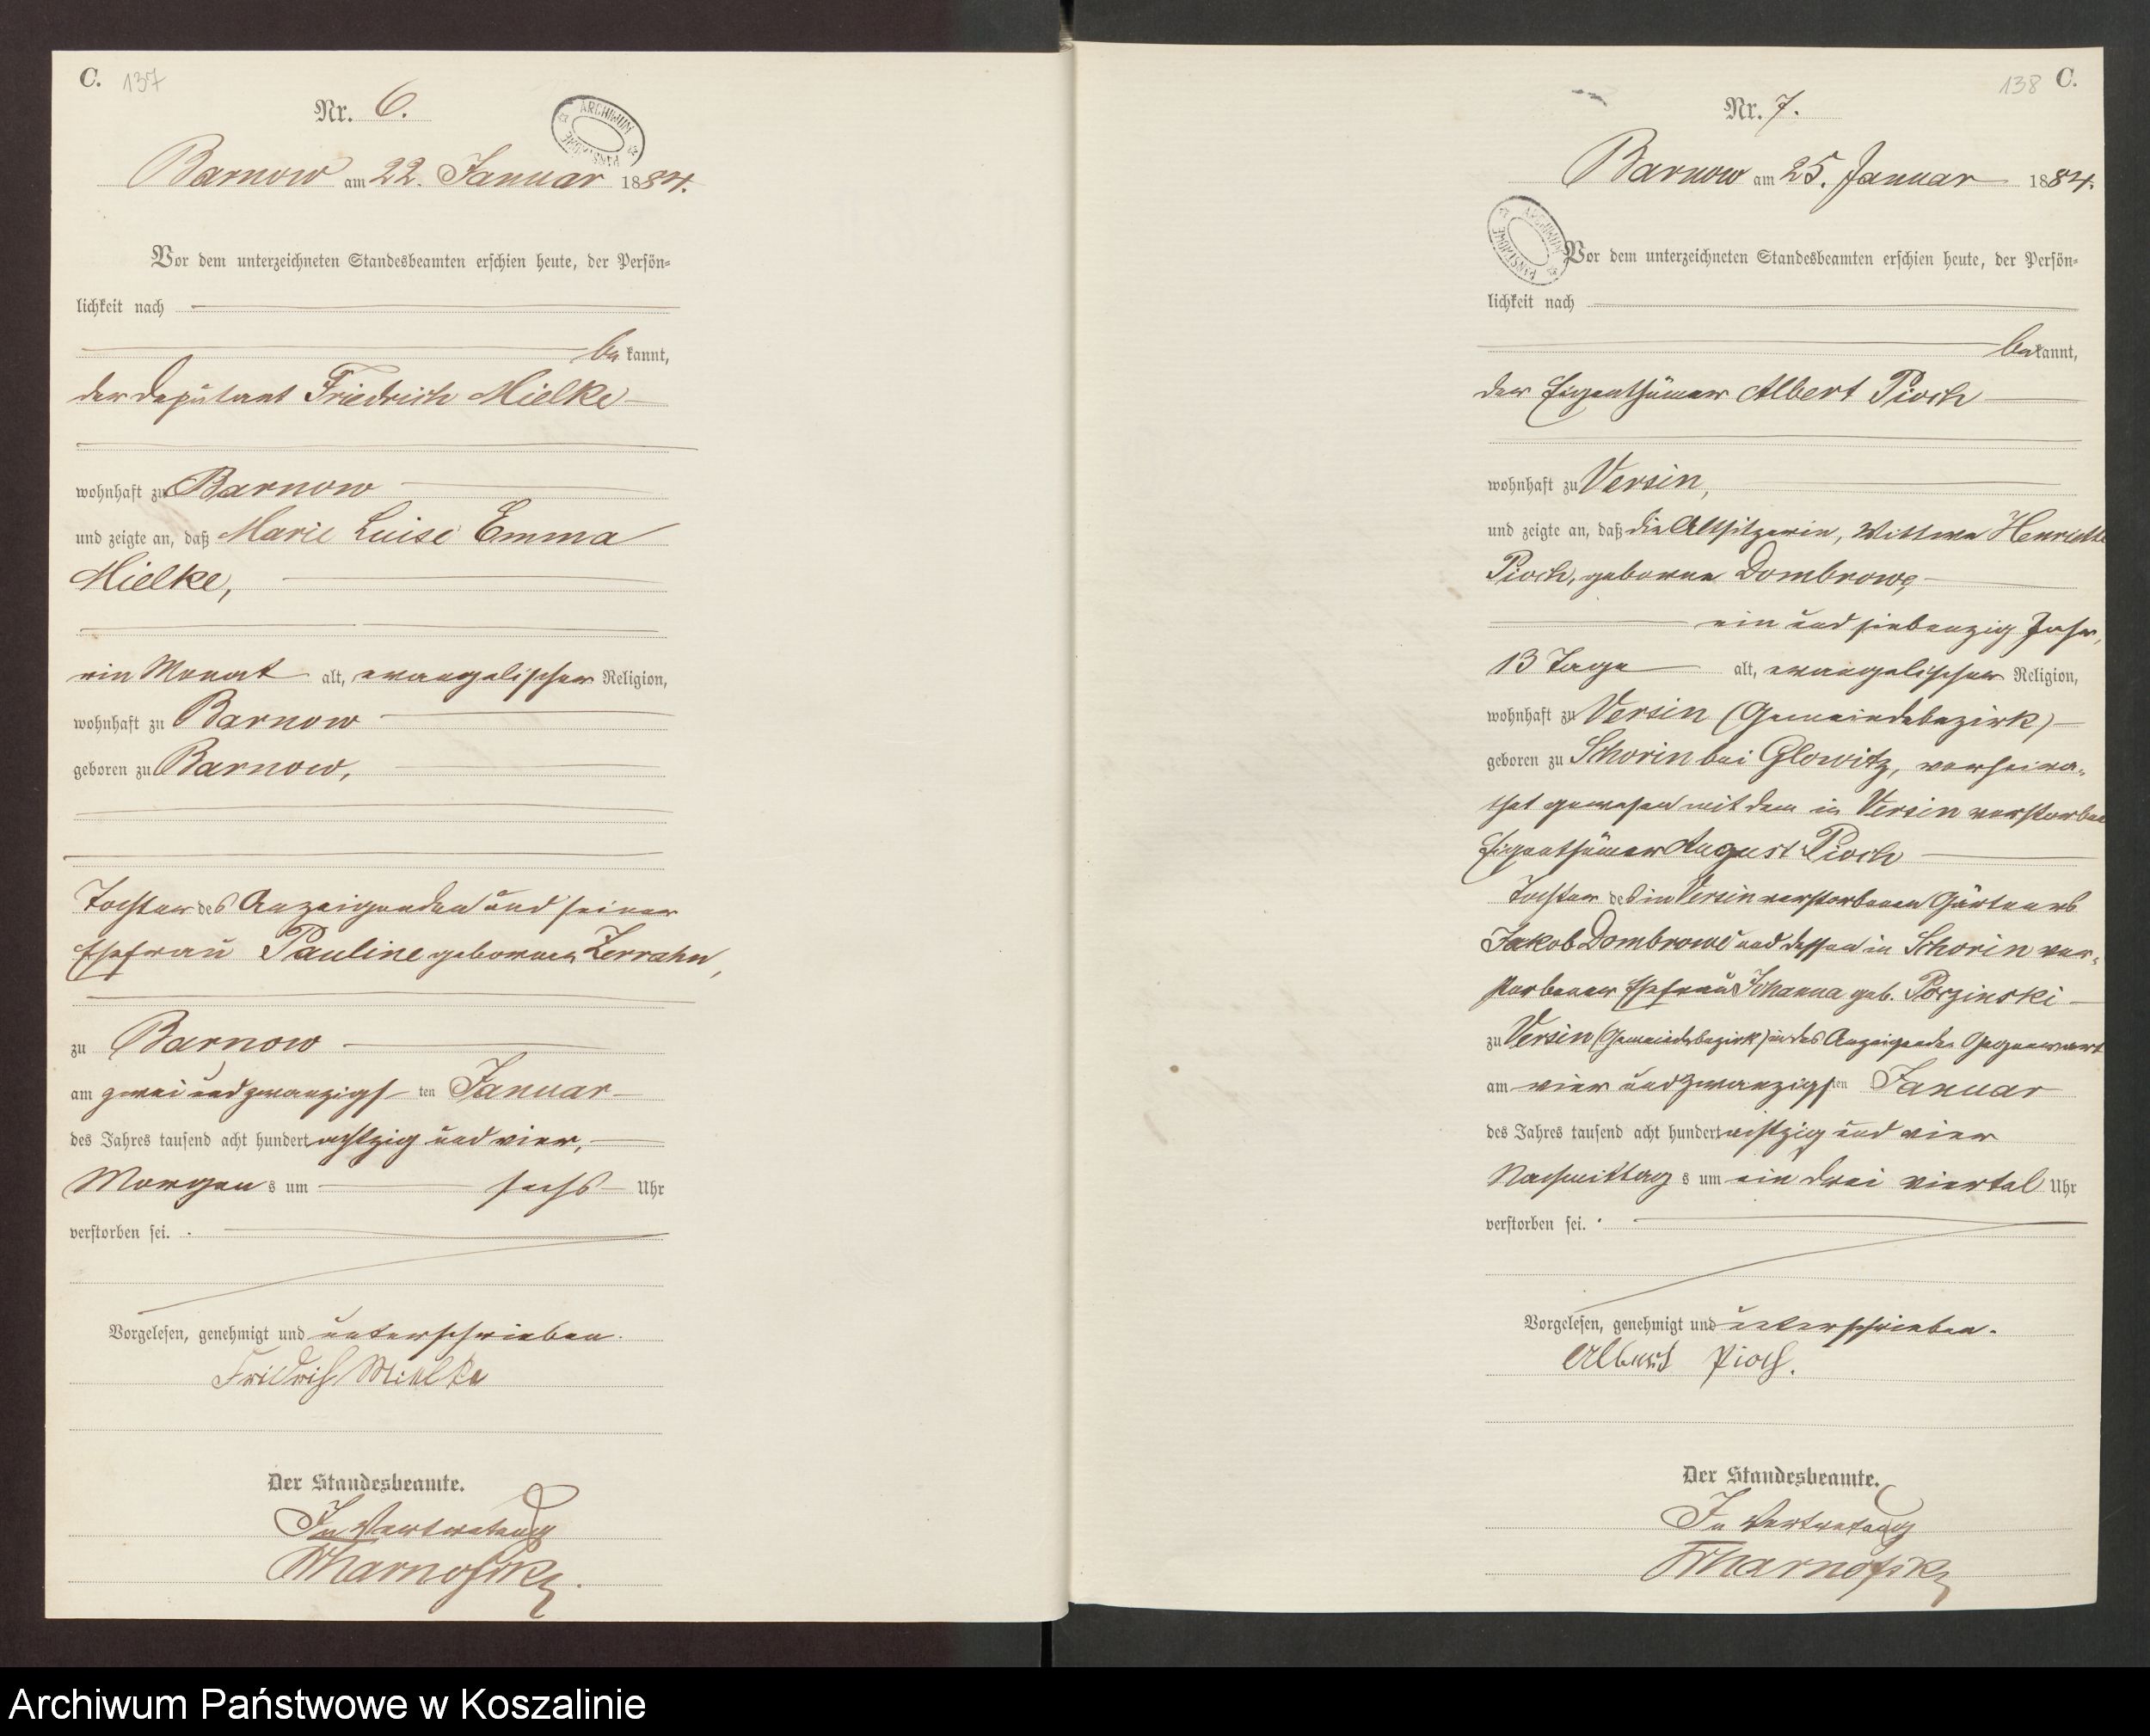 C. 137
Nr. 6.
ARCHIWUM PAŃSTWOWE
Barnow am 22. Januar 1884.
Vor dem unterzeichneten Standesbeamten erschien heute, der Persön-
lichkeit nach
bekannt,
der Deputant Friedrich Mielke
wohnhaft zu Barnow
und zeigte an, daß Marie Luise Emma
Mielke,
ein Monat alt, evangelischer Religion,
wohnhaft zu Barnow
geboren zu Barnow,
Tochter des Anzeigenden und seiner
Ehefrau Pauline geborenen Zerrahn,
zu Barnow
am zwei und zwanzigsten Januar
des Jahres tausend acht hundert achtzig und vier,
Morgens um sechs Uhr
verstorben sei.
Vorgelesen, genehmigt und unterschrieben.
Fridrich Mielke
Der Standesbeamte.
In Vertretung
138 C.
Nr. 7.
Barnow am 25. Januar 1884.
ARCHIWUM PAŃSTWOWE
Vor dem unterzeichneten Standesbeamten erschien heute, der Persön-
lichkeit nach
bekannt,
der Eigenthümer Albert Pioch
wohnhaft zu Versin,
und zeigte an, daß die Altsitzerin, Wittwe Henriette
Pioch, geborene Dombrowe,
ein und siebenzig Jahr,
13 Tage alt, evangelischer Religion,
wohnhaft zu Versin (Gemeindebezirk)
geboren zu Schorin bei Glowitz, verheira-
thet gewesen mit dem in Versin verstorbenen
Eigenthümer August Pioch
Tochter des in Versin verstorbenen Gärtners
Jakob Dombrowe und dessen in Schorin ver-
storbener Ehefrau Johanna geb. Porzinski
zu Versin (Gemeindebezirk) in des Anzeigenden Gegenwart
am vier und zwanzigsten Januar
des Jahres tausend acht hundert achtzig und vier
Nachmittags um ein drei viertel Uhr
verstorben sei.
Vorgelesen, genehmigt und unterschrieben.
Albert Pioch.
Der Standesbeamte.
In Vertretung
Archiwum Państwowe w Koszalinie